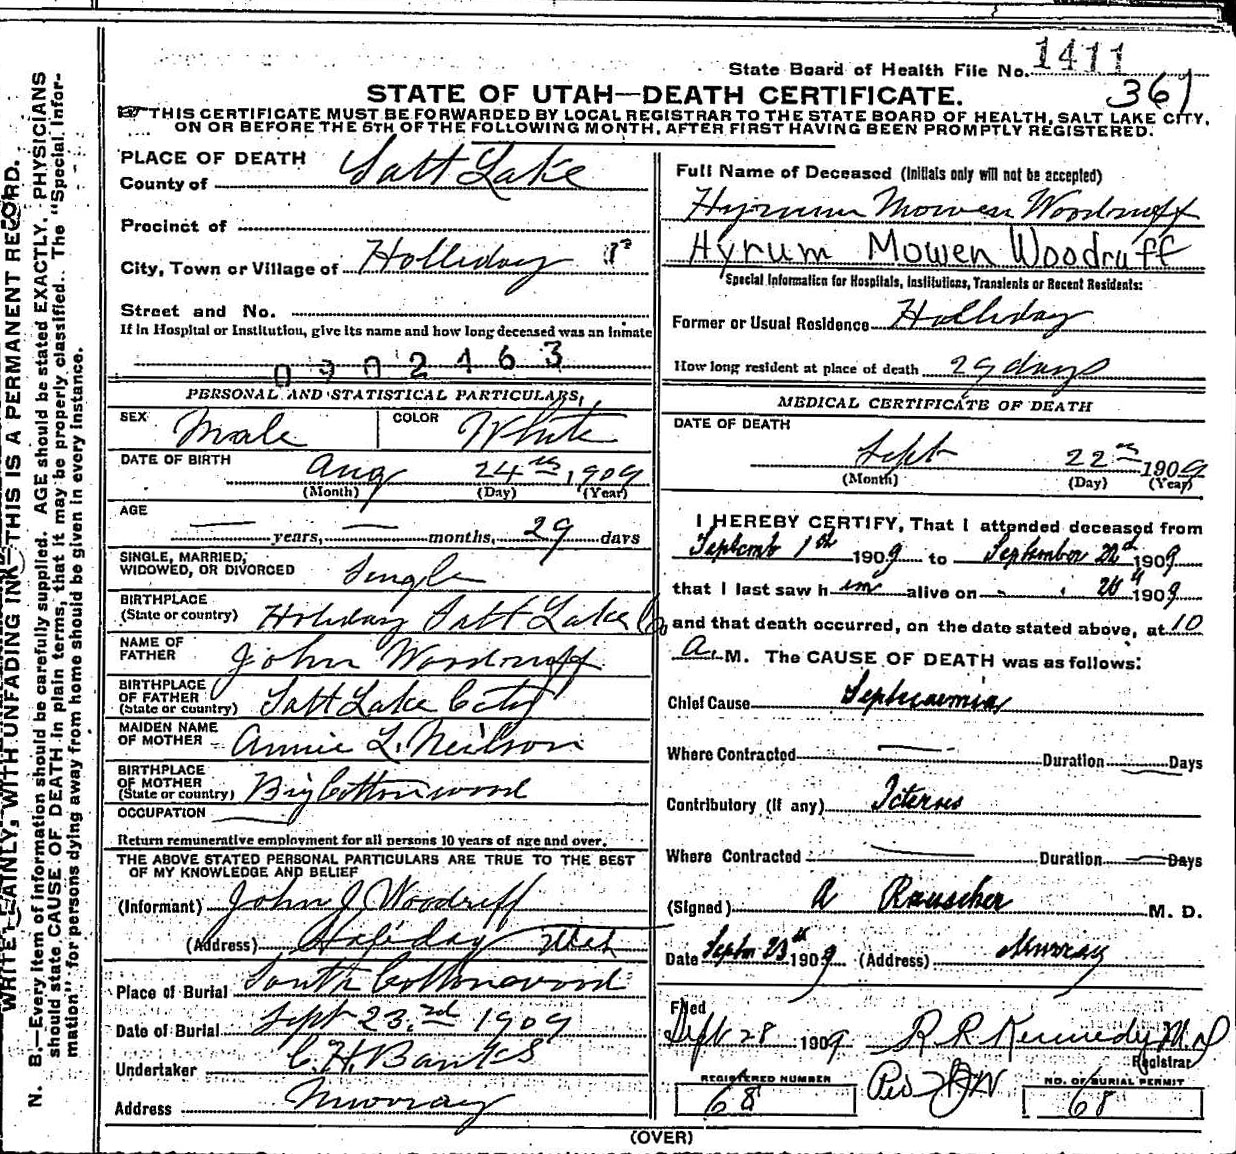 State Board of Health File No. 1411
361
STATE OF UTAH—DEATH CERTIFICATE.
THIS CERTIFICATE MUST BE FORWARDED BY LOCAL REGISTRAR TO THE STATE BOARD OF HEALTH, SALT LAKE CITY,
ON OR BEFORE THE 5TH OF THE FOLLOWING MONTH, AFTER FIRST HAVING BEEN PROMPTLY REGISTERED.
PLACE OF DEATH
County of Salt Lake
Precinct of
City, Town or Village of Holliday
Street and No.
If in Hospital or Institution, give its name and how long deceased was an inmate
0902463
PERSONAL AND STATISTICAL PARTICULARS,
SEX Male COLOR White
DATE OF BIRTH Aug 24th, 1909
(Month) (Day) (Year)
AGE
— years, — months, 29 days
SINGLE, MARRIED,
WIDOWED, OR DIVORCED Single
BIRTHPLACE
(State or country) Holiday Salt Lake Co
NAME OF
FATHER John Woodruff
BIRTHPLACE
OF FATHER
(State or country) Salt Lake City
MAIDEN NAME
OF MOTHER Annie L. Neilson
BIRTHPLACE
OF MOTHER
(State or country) Big Cottonwood
OCCUPATION
Return remunerative employment for all persons 10 years of age and over.
THE ABOVE STATED PERSONAL PARTICULARS ARE TRUE TO THE BEST
OF MY KNOWLEDGE AND BELIEF
(Informant) John J Woodruff
(Address) Holiday Utah
Place of Burial South Cottonwood
Date of Burial Sept 23rd 1909
Undertaker C. H. Banks
Address Murray
Full Name of Deceased (Initials only will not be accepted)
Hyrum Mowen Woodruff
Hyrum Mowen Woodruff
Special Information for Hospitals, Institutions, Transients or Recent Residents:
Former or Usual Residence Holliday
How long resident at place of death 29 days
MEDICAL CERTIFICATE OF DEATH
DATE OF DEATH
Sept 22nd 1909
(Month) (Day) (Year)
I HEREBY CERTIFY, That I attended deceased from
Septemb 1st 1909 to September 22d 1909
that I last saw him alive on 1909
and that death occurred, on the date stated above, at 10
A. M. The CAUSE OF DEATH was as follows:
Chief Cause Septicaemia
Where Contracted — Duration — Days
Contributory (if any) Icterus
Where Contracted — Duration — Days
(Signed) A Rauscher M. D.
Date Septbr 23th 1909 (Address) Murray
Filed
Sept 28 1909 R R Kennedy M.D
Registrar
REGISTERED NUMBER
68
NO. OF BURIAL PERMIT
68
(OVER)
WRITE PLAINLY, WITH UNFADING INK—THIS IS A PERMANENT RECORD.
N. B.—Every item of information should be carefully supplied. AGE should be stated EXACTLY. PHYSICIANS
should state CAUSE OF DEATH in plain terms, that it may be properly classified. The "Special Infor-
mation" for persons dying away from home should be given in every instance.